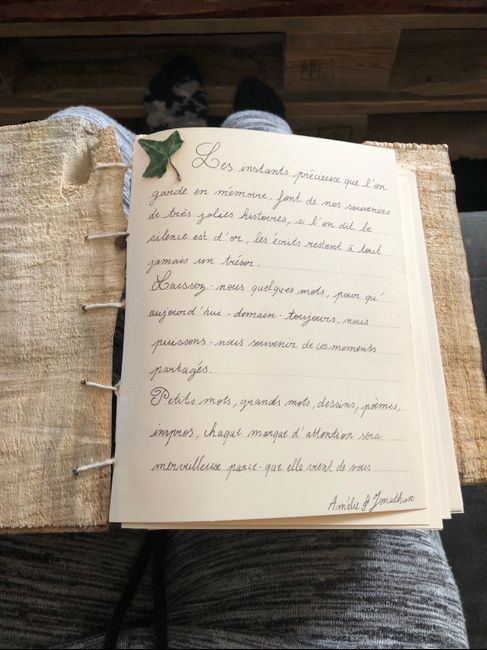 Les instants précieux que l'on
garde en mémoire, font de nos souvenirs
de très jolies histoires, si l'on dit le
silence est d'or, les écrits restent à tout
jamais un trésor.
Laissez-nous quelques mots, pour qu'
aujourd'hui - demain - toujours, nous
puissons-nous souvenir de ces moments
partagés.
Petits mots, grands mots, dessins, poèmes,
impros, chaque marque d'attention sera
merveilleuse parce-que elle vient de vous
Amélie & Jonathan